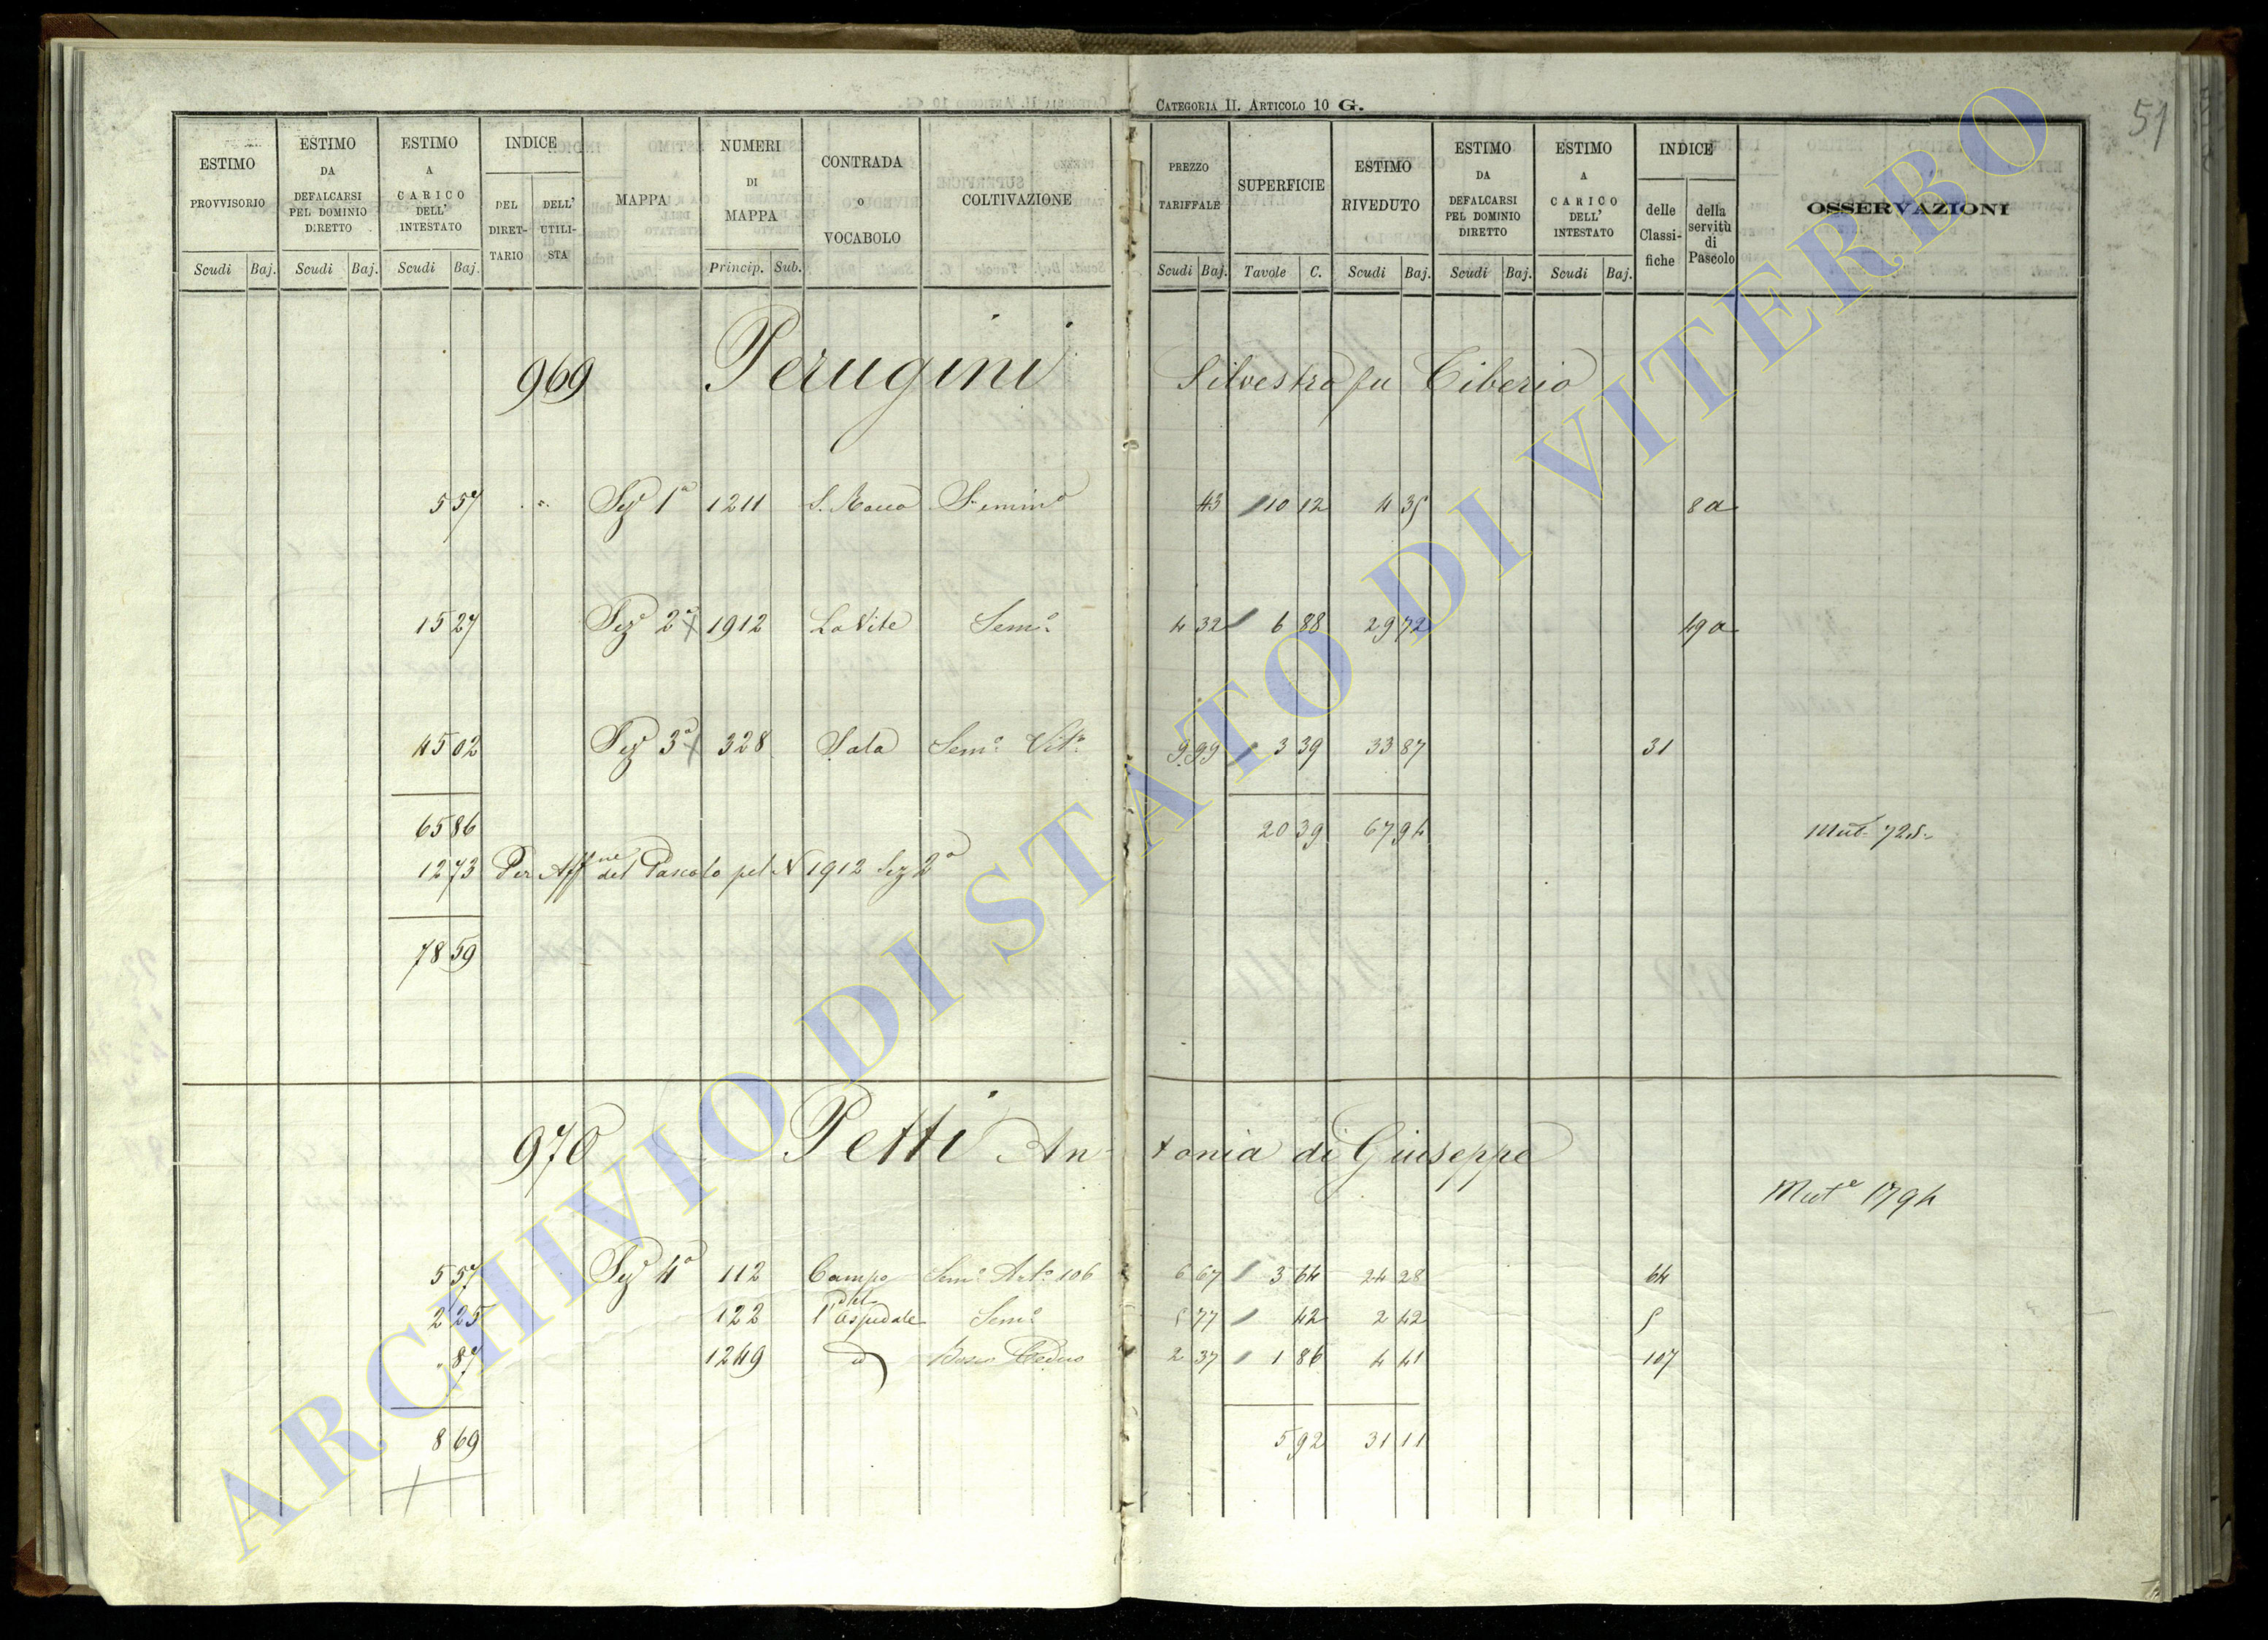 CATEGORIA II. ARTICOLO 10 G.
51
ESTIMO PROVVISORIO Scudi Baj. ESTIMO DA DEFALCARSI PEL DOMINIO DIRETTO Scudi Baj. ESTIMO A CARICO DELL' INTESTATO Scudi Baj. INDICE DEL DIRETTARIO DELL' UTILISTA MAPPA NUMERI DI MAPPA Princip. Sub. CONTRADA O VOCABOLO COLTIVAZIONE
PREZZO TARIFFALE Scudi Baj. SUPERFICIE Tavole C. ESTIMO RIVEDUTO Scudi Baj. ESTIMO DA DEFALCARSI PEL DOMINIO DIRETTO Scudi Baj. ESTIMO A CARICO DELL' INTESTATO Scudi Baj. INDICE delle Classifiche della servitù di Pascolo OSSERVAZIONI
969 Perugini Silvestro fu Tiberio
5 57 Sez.e 1a 1211 S. Rocco Semin.o 43 10 12 4 35 8a
15 27 Sez.e 2a 1912 La Vite Sem.o 4 32 6 88 29 72 49a
45 02 Sez.e 3a 328 Sala Sem.o Vit.o 9 99 3 39 33 87 31
65 86 20 39 67 94 Mut.e 725
12 73 Per Aff.ne del Pascolo pel N 1912 Sez 2a
78 59
970 Petti Antonia di Giuseppe
Mut.e 1794
5 57 Sez.e 4a 112 Campo del Sem.o Art.o 106 6 67 3 64 24 28 64
2 25 122 l'Ospedale Sem.o 5 77 42 2 42 5
" 87 1249 id Bosco Ceduo 2 37 1 86 4 41 107
8 69 5 92 31 11
ARCHIVIO DI STATO DI VITERBO